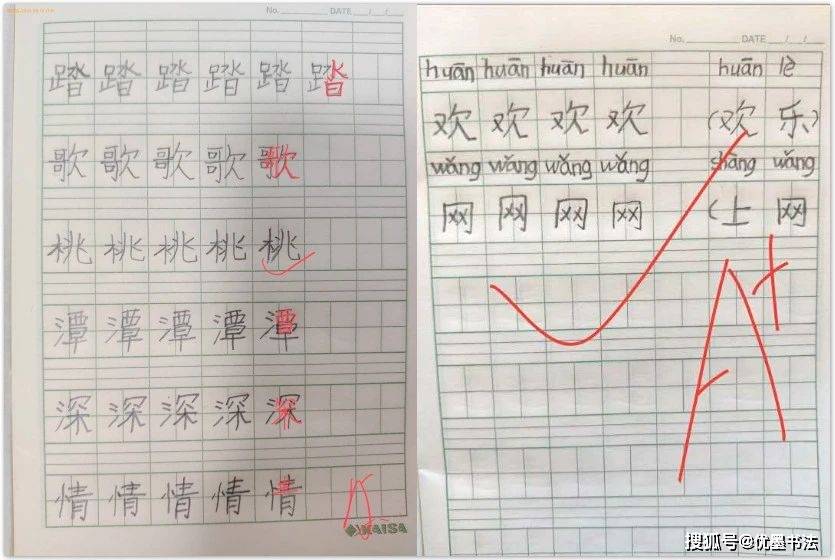 No. DATE / /
踏 踏 踏 踏 踏 踏
歌 歌 歌 歌 歌
桃 桃 桃 桃 桃
潭 潭 潭 潭 潭
深 深 深 深 深
情 情 情 情 情
KAISA
No. DATE / /
huān huān huān huān huān lè
欢 欢 欢 欢 (欢 乐)
wǎng wǎng wǎng wǎng shàng wǎng
网 网 网 网 (上 网
A+
搜狐号@优墨书法